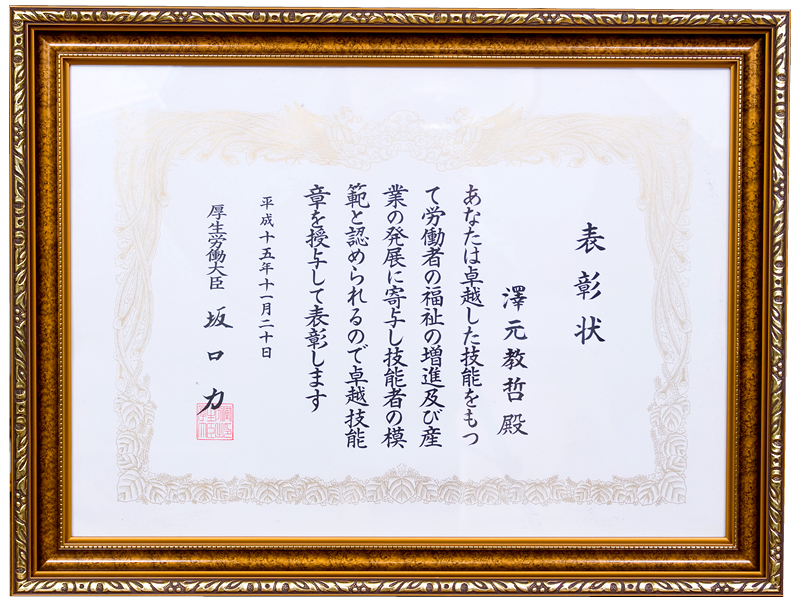 表彰状
澤元教哲殿
あなたは卓越した技能をもつ
て労働者の福祉の増進及び産
業の発展に寄与し技能者の模
範と認められるので卓越技能
章を授与して表彰します
平成十五年十一月二十日
厚生労働大臣 坂口力